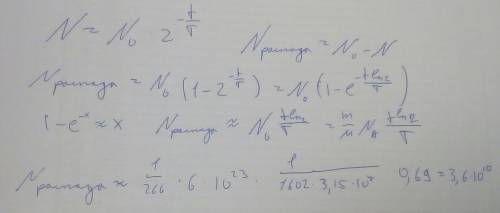 N = N₀ · 2^(-t/T)
Nраспада = N₀ - N
Nраспада = N₀ (1-2^(-t/T)) = N₀ (1-e^(-t ln2/T))
1-e^(-x) ≈ x Nраспада ≈ N₀ t ln2/T = m/μ N_A t ln2/T
Nраспада ≈ 1/266 · 6 · 10²³ · 1/(1602 · 3,15 · 10⁷) 0,69 = 3,6 · 10¹⁰